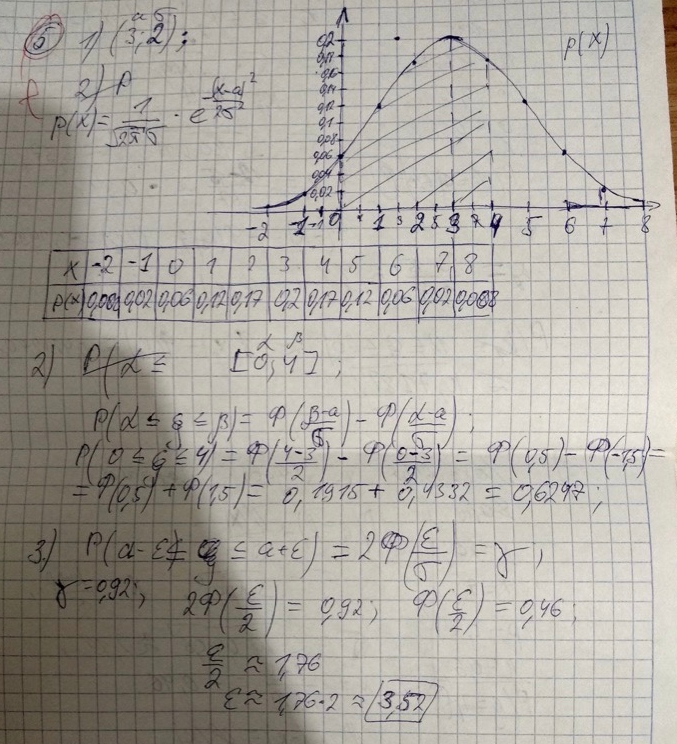 5 1) (3; 2);
a σ
p(x)
2) P
p(x) = 1/(√2π σ) · e^((x-a)²/2σ²)
0,2
0,14
0,12
0,1
0,08
0,06
0,04
0,02
-2 -1 0 1 2 3 4 5 6 7 8
x -2 -1 0 1 2 3 4 5 6 7 8
p(x) 0,008 0,02 0,06 0,12 0,17 0,2 0,17 0,12 0,06 0,02 0,008
α β
2) P(α ≤ [0, 4];
P(α ≤ ξ ≤ β) = Ф((β-a)/σ) - Ф((α-a)/σ);
P(0 ≤ ξ ≤ 4) = Ф((4-3)/2) - Ф((0-3)/2) = Ф(0,5) - Ф(-1,5) =
= Ф(0,5) + Ф(1,5) = 0,1915 + 0,4332 = 0,6247;
3) P(a-ε ≤ ξ ≤ a+ε) = 2Ф(ε/σ) = γ;
γ = 0,92; 2Ф(ε/2) = 0,92; Ф(ε/2) = 0,46;
ε/2 ≈ 1,76
ε ≈ 1,76·2 ≈ 3,52